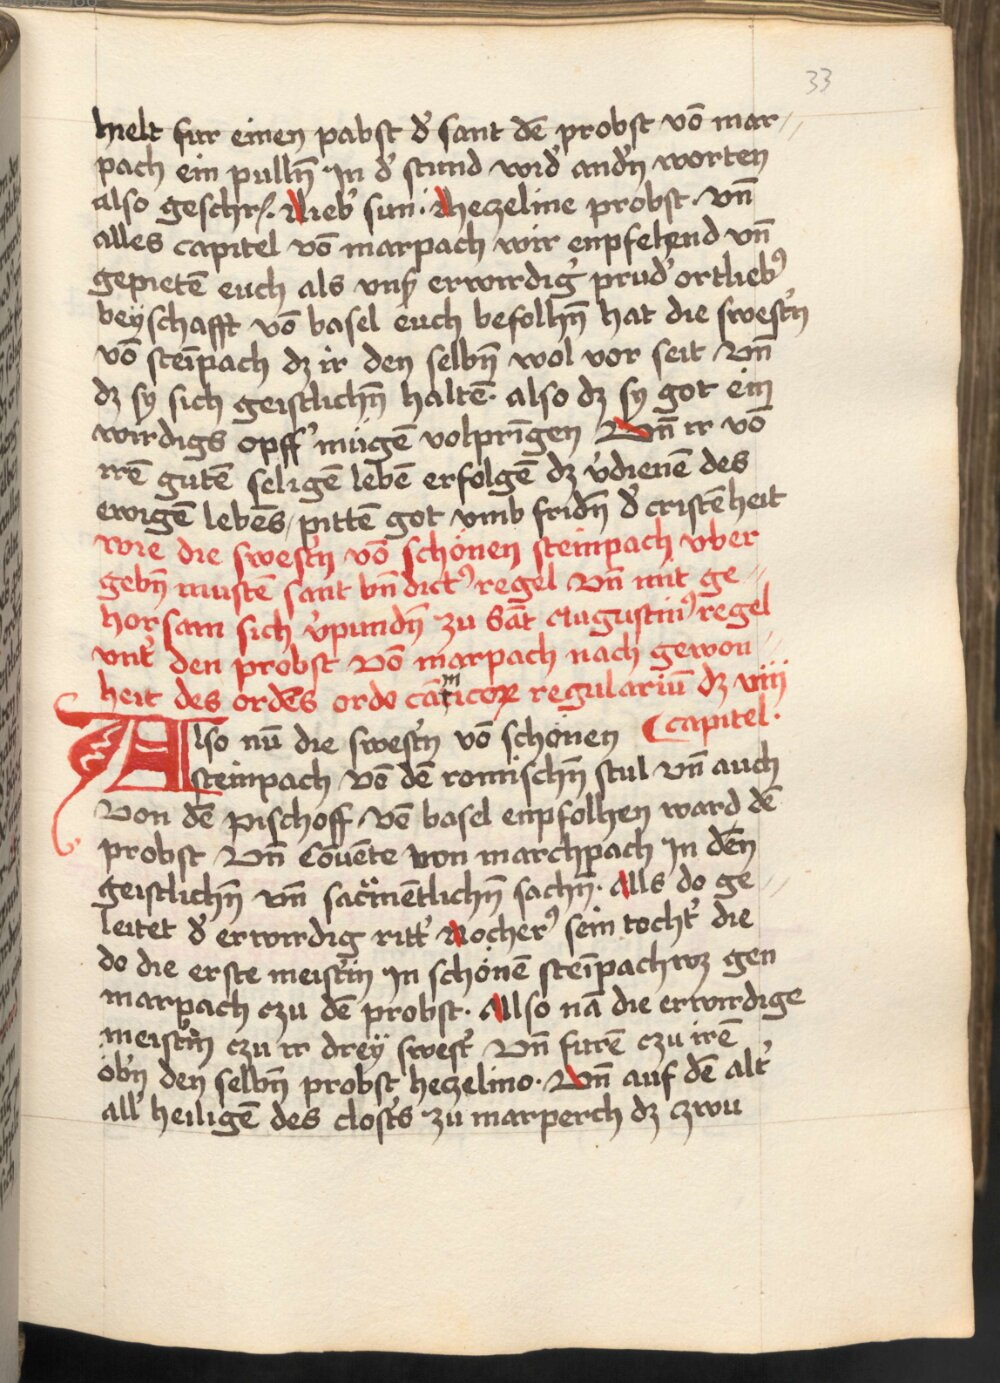 33
hielt fur einen pabst d' sant dē probst vō mar//
pach ein pulln̄ In d' stund wid' and'n worten
also geschr. Lieb' sun. Hezeline probst. vn̄
alles capitel vō marpach wir enpfelend vn̄
gepietē euch als vnß erwirdig' prud' ortlieb9
beÿschafft vō basel euch befolhn̄ hat die swest'n
vō steīpach dz ir den selbn̄ wol vor seit Vn̄
dz sy sich geistlichn̄ haltē. also dz sy got ein
wirdigs opff' mügē volprīgen Vn̄ ir vō
irē gutē seligē lebē erfolgē dz v'dienē des
ewigē lebēs / pittē got vmb fridn̄ d' cristēheit
wie die swest'n vō schönen steinpach vber
gebn̄ mustē sant bn̄dict9 regel Vn̄ mit ge //
horsam sich v'pundn̄ zu Sāt Augustin9 regel
vnt' den probst Vō marpach nach gewon //
heit des ordēs ordo cānicoꝝ regulariū dz viij
capitel.
Also nū die swest'n vō schönen
steinpach vō dē romischn̄ stul vn̄ auch
Von dē pischoff vō basel enpfolhen ward dē
probst Vn̄ Cōuēte von marchpach In dēn
geistlichn̄ vn̄ sacmētlichn̄ sachn̄. Alls do ge //
leitet d' erwirdig ritt' Nocher9 sein tocht' die
do die erste meist'in In schönē steīpach wz gen
marpach czu dē probst. Allso nā die erwirdige
meist'in czu ir dreÿ swest' Vn̄ furē czu irē
öb'n den selbn̄ probst hezelino. Vn̄ auf dē alt'
all' heiligē des clost's zu marperch dz czwu